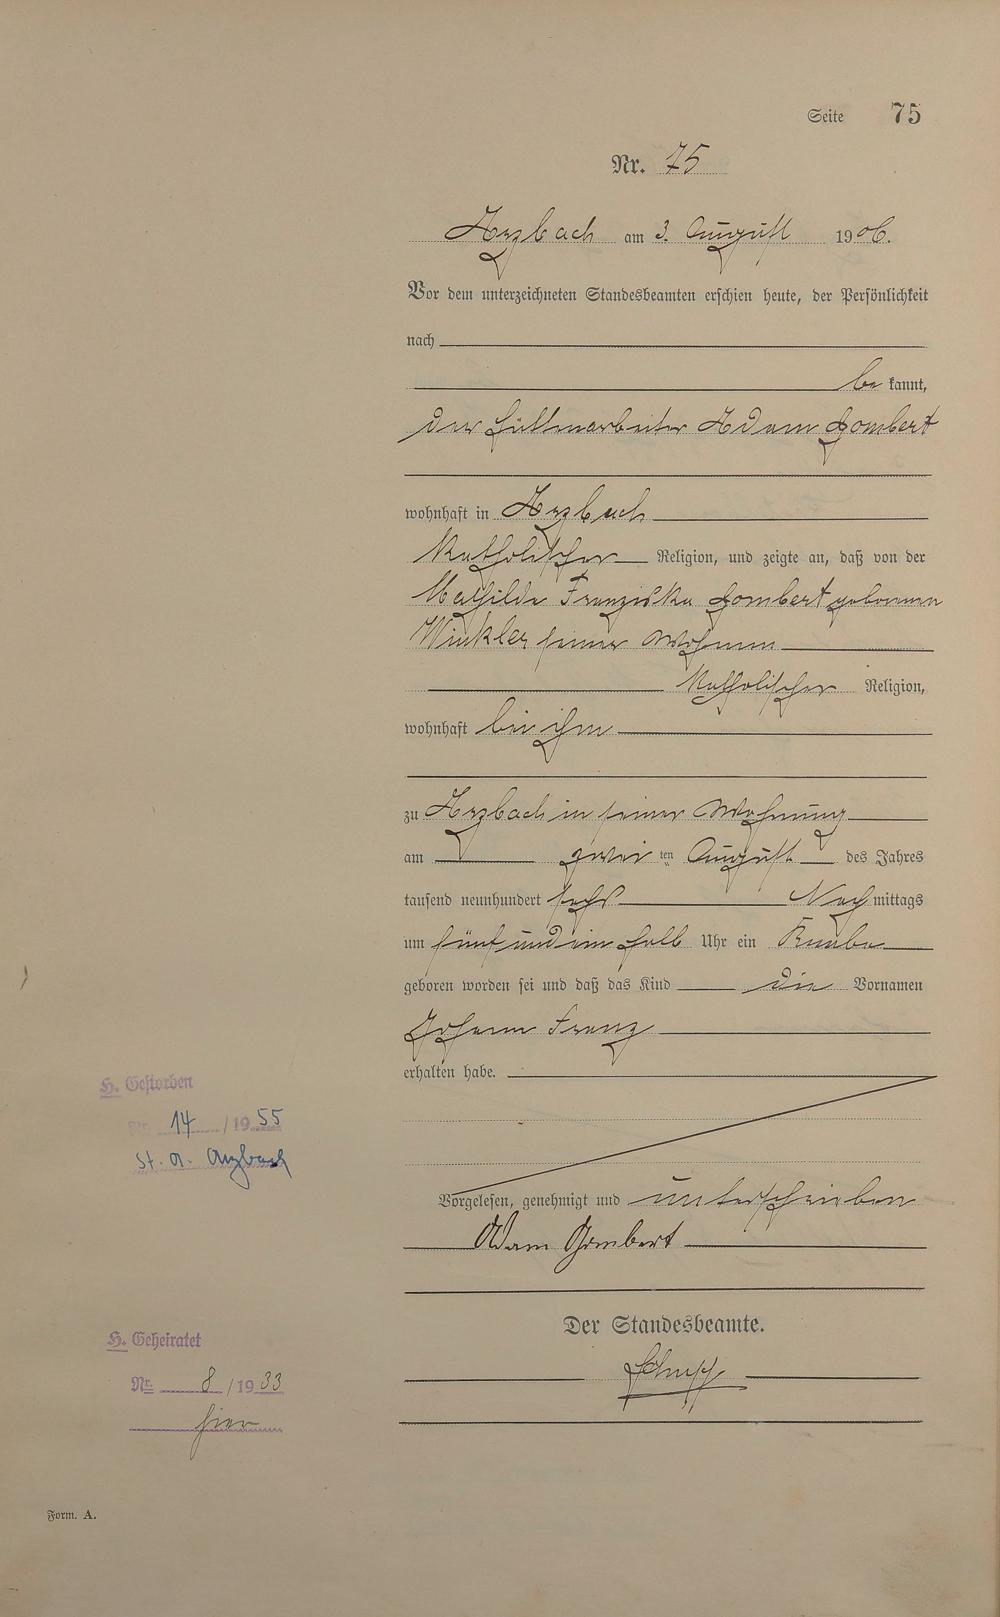 Seite 75
Nr. 75
Arzbach am 3. August 1906.
Vor dem unterzeichneten Standesbeamten erschien heute, der Persönlichkeit
nach
be kannt,
der Hüttenarbeiter Adam Gombert
wohnhaft in Arzbach
Katholischer Religion, und zeigte an, daß von der
Mathilde Franziska Gombert geborenen
Winkler seiner Ehefrau
Katholischer Religion,
wohnhaft bei ihm
zu Arzbach in seiner Wohnung
am zwei ten August des Jahres
tausend neunhundert sechs Nach mittags
um fünf und ein halb Uhr ein Knabe
geboren worden sei und daß das Kind die Vornamen
Johann Franz
erhalten habe.
H. Gestorben
Nr. 14 / 1955
St. A. Arzbach
Vorgelesen, genehmigt und unterschrieben
Adam Gombert
Der Standesbeamte.
H. Geheiratet
Nr. 8 / 1933
hier
Form. A.